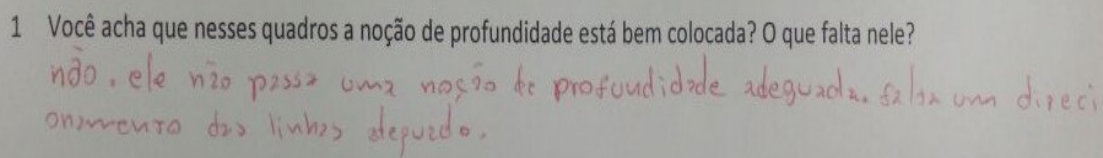 1 Você acha que nesses quadros a noção de profundidade está bem colocada? O que falta nele?
não. ele não passa uma noção de profoudidade adeguada. falta um direci
onamento das linhas adeguado.